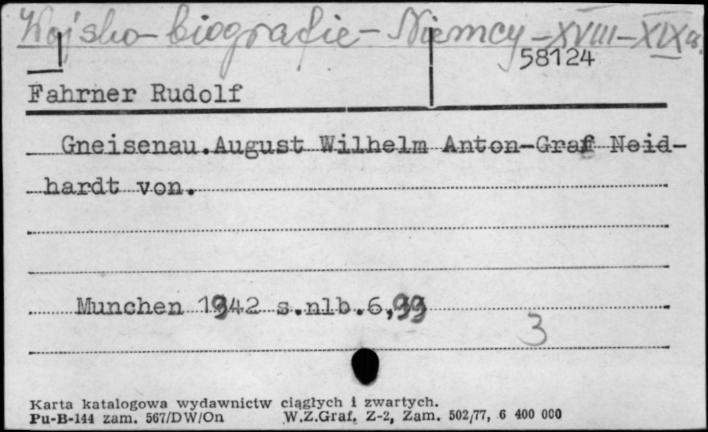 Wojsko-biografie-Niemcy-XVIII-XIX w.
58124
Fahrner Rudolf
Gneisenau.August Wilhelm Anton-Graf Neid-
hardt von.
Munchen 1942 s.nlb.6,
3
Karta katalogowa wydawnictw ciągłych i zwartych.
Pu-B-144 zam. 567/DW/On W.Z.Graf. Z-2, Zam. 502/77, 6 400 000